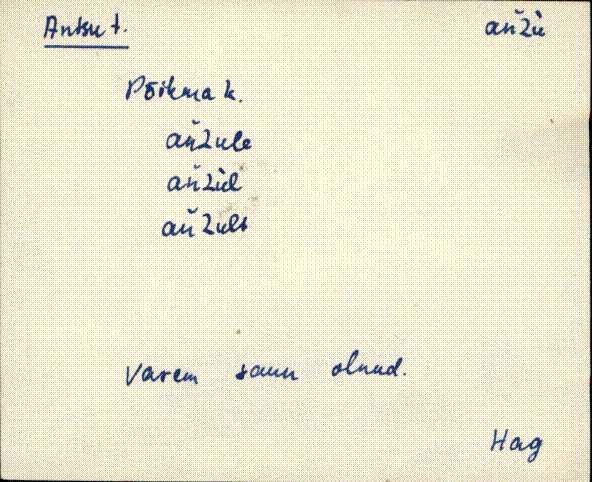 Antsu t. aňžu̬
Põikma k.
aňžule
aňžu̬l
aňžult
Varem saun olnud.
Hag